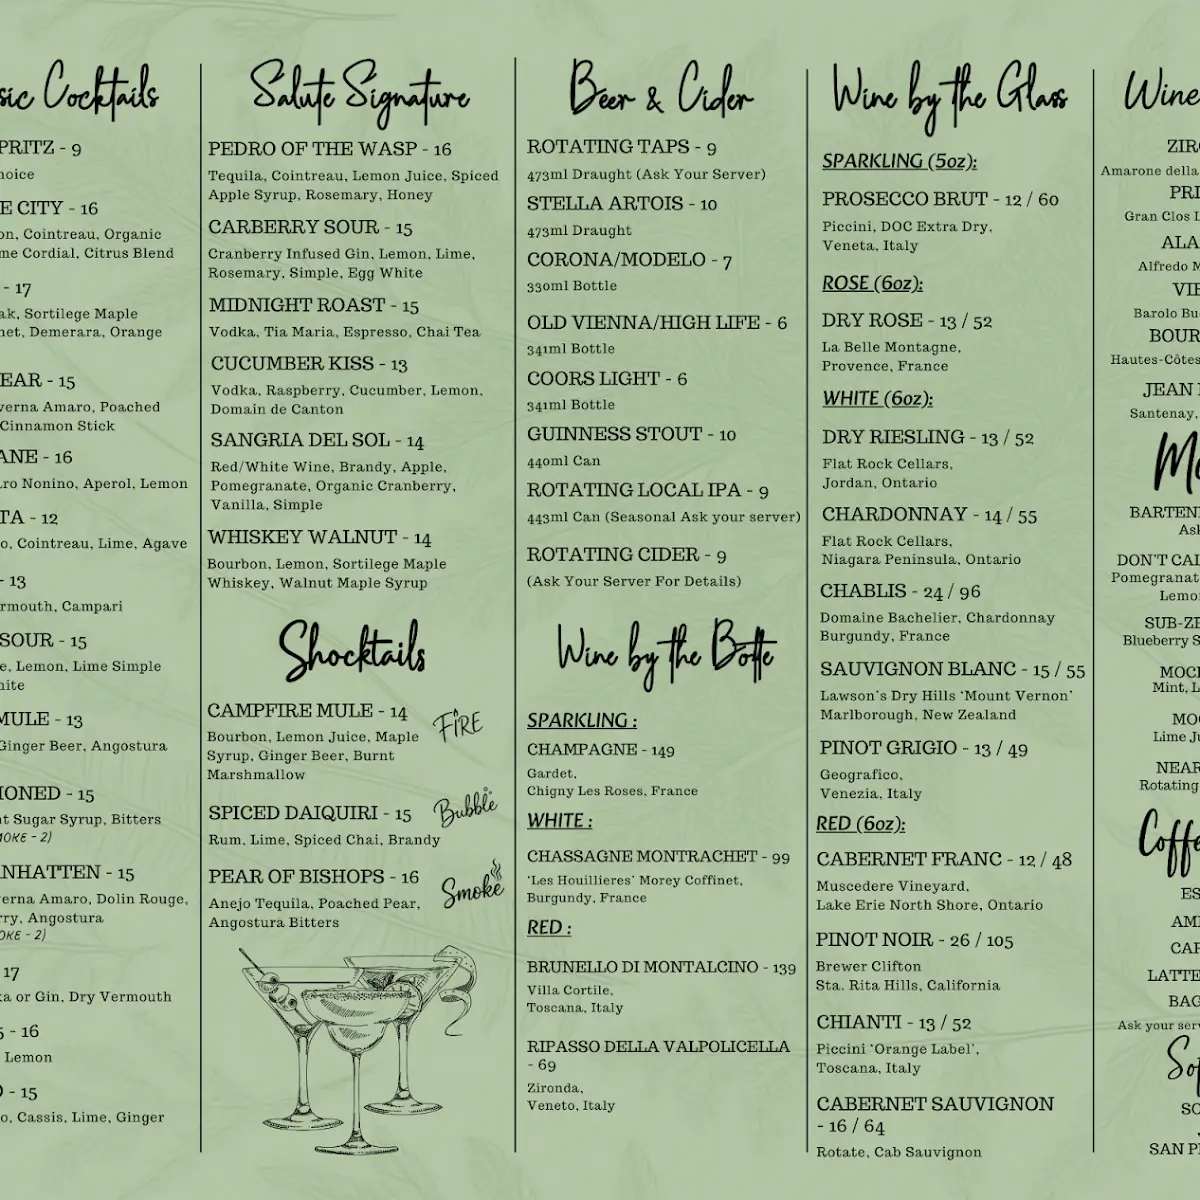 Cocktails
- 9
CITY - 16
Cointreau, Organic
Cordial, Citrus Blend
- 17
Sortilege Maple
Demerara, Orange
- 15
Amaro, Poached
Cinnamon Stick
- 16
Nonino, Aperol, Lemon
- 12
Cointreau, Lime, Agave
- 13
Campari
SOUR - 15
Lemon, Lime Simple
MULE - 13
Ginger Beer, Angostura
- 15
Sugar Syrup, Bitters
- 2)
- 15
Amaro, Dolin Rouge,
Angostura
- 2)
17
or Gin, Dry Vermouth
- 16
Lemon
- 15
Cassis, Lime, Ginger
Salute Signature
PEDRO OF THE WASP - 16
Tequila, Cointreau, Lemon Juice, Spiced
Apple Syrup, Rosemary, Honey
CARBERRY SOUR - 15
Cranberry Infused Gin, Lemon, Lime,
Rosemary, Simple, Egg White
MIDNIGHT ROAST - 15
Vodka, Tia Maria, Espresso, Chai Tea
CUCUMBER KISS - 13
Vodka, Raspberry, Cucumber, Lemon,
Domain de Canton
SANGRIA DEL SOL - 14
Red/White Wine, Brandy, Apple,
Pomegranate, Organic Cranberry,
Vanilla, Simple
WHISKEY WALNUT - 14
Bourbon, Lemon, Sortilege Maple
Whiskey, Walnut Maple Syrup
Shocktails
CAMPFIRE MULE - 14
FIRE
Bourbon, Lemon Juice, Maple
Syrup, Ginger Beer, Burnt
Marshmallow
SPICED DAIQUIRI - 15
Bubble
Rum, Lime, Spiced Chai, Brandy
PEAR OF BISHOPS - 16
Smoke
Anejo Tequila, Poached Pear,
Angostura Bitters
Beer & Cider
ROTATING TAPS - 9
473ml Draught (Ask Your Server)
STELLA ARTOIS - 10
473ml Draught
CORONA/MODELO - 7
330ml Bottle
OLD VIENNA/HIGH LIFE - 6
341ml Bottle
COORS LIGHT - 6
341ml Bottle
GUINNESS STOUT - 10
440ml Can
ROTATING LOCAL IPA - 9
443ml Can (Seasonal Ask your server)
ROTATING CIDER - 9
(Ask Your Server For Details)
Wine by the Bottle
SPARKLING :
CHAMPAGNE - 149
Gardet,
Chigny Les Roses, France
WHITE :
CHASSAGNE MONTRACHET - 99
'Les Houillieres' Morey Coffinet,
Burgundy, France
RED :
BRUNELLO DI MONTALCINO - 139
Villa Cortile,
Toscana, Italy
RIPASSO DELLA VALPOLICELLA
- 69
Zironda,
Veneto, Italy
Wine by the Glass
SPARKLING (5oz):
PROSECCO BRUT - 12 / 60
Piccini, DOC Extra Dry,
Veneta, Italy
ROSE (6oz):
DRY ROSE - 13 / 52
La Belle Montagne,
Provence, France
WHITE (6oz):
DRY RIESLING - 13 / 52
Flat Rock Cellars,
Jordan, Ontario
CHARDONNAY - 14 / 55
Flat Rock Cellars,
Niagara Peninsula, Ontario
CHABLIS - 24 / 96
Domaine Bachelier, Chardonnay
Burgundy, France
SAUVIGNON BLANC - 15 / 55
Lawson's Dry Hills 'Mount Vernon'
Marlborough, New Zealand
PINOT GRIGIO - 13 / 49
Geografico,
Venezia, Italy
RED (6oz):
CABERNET FRANC - 12 / 48
Muscedere Vineyard,
Lake Erie North Shore, Ontario
PINOT NOIR - 26 / 105
Brewer Clifton
Sta. Rita Hills, California
CHIANTI - 13 / 52
Piccini 'Orange Label',
Toscana, Italy
CABERNET SAUVIGNON
- 16 / 64
Rotate, Cab Sauvignon
Wine
Amarone della
Gran Clos
Alfredo
Barolo
Hautes-Côtes
JEAN
Santenay,
Ask
DON'T
SUB-
Blueberry
Mint,
Lime
NEAR
Rotating
Ask your
SAN